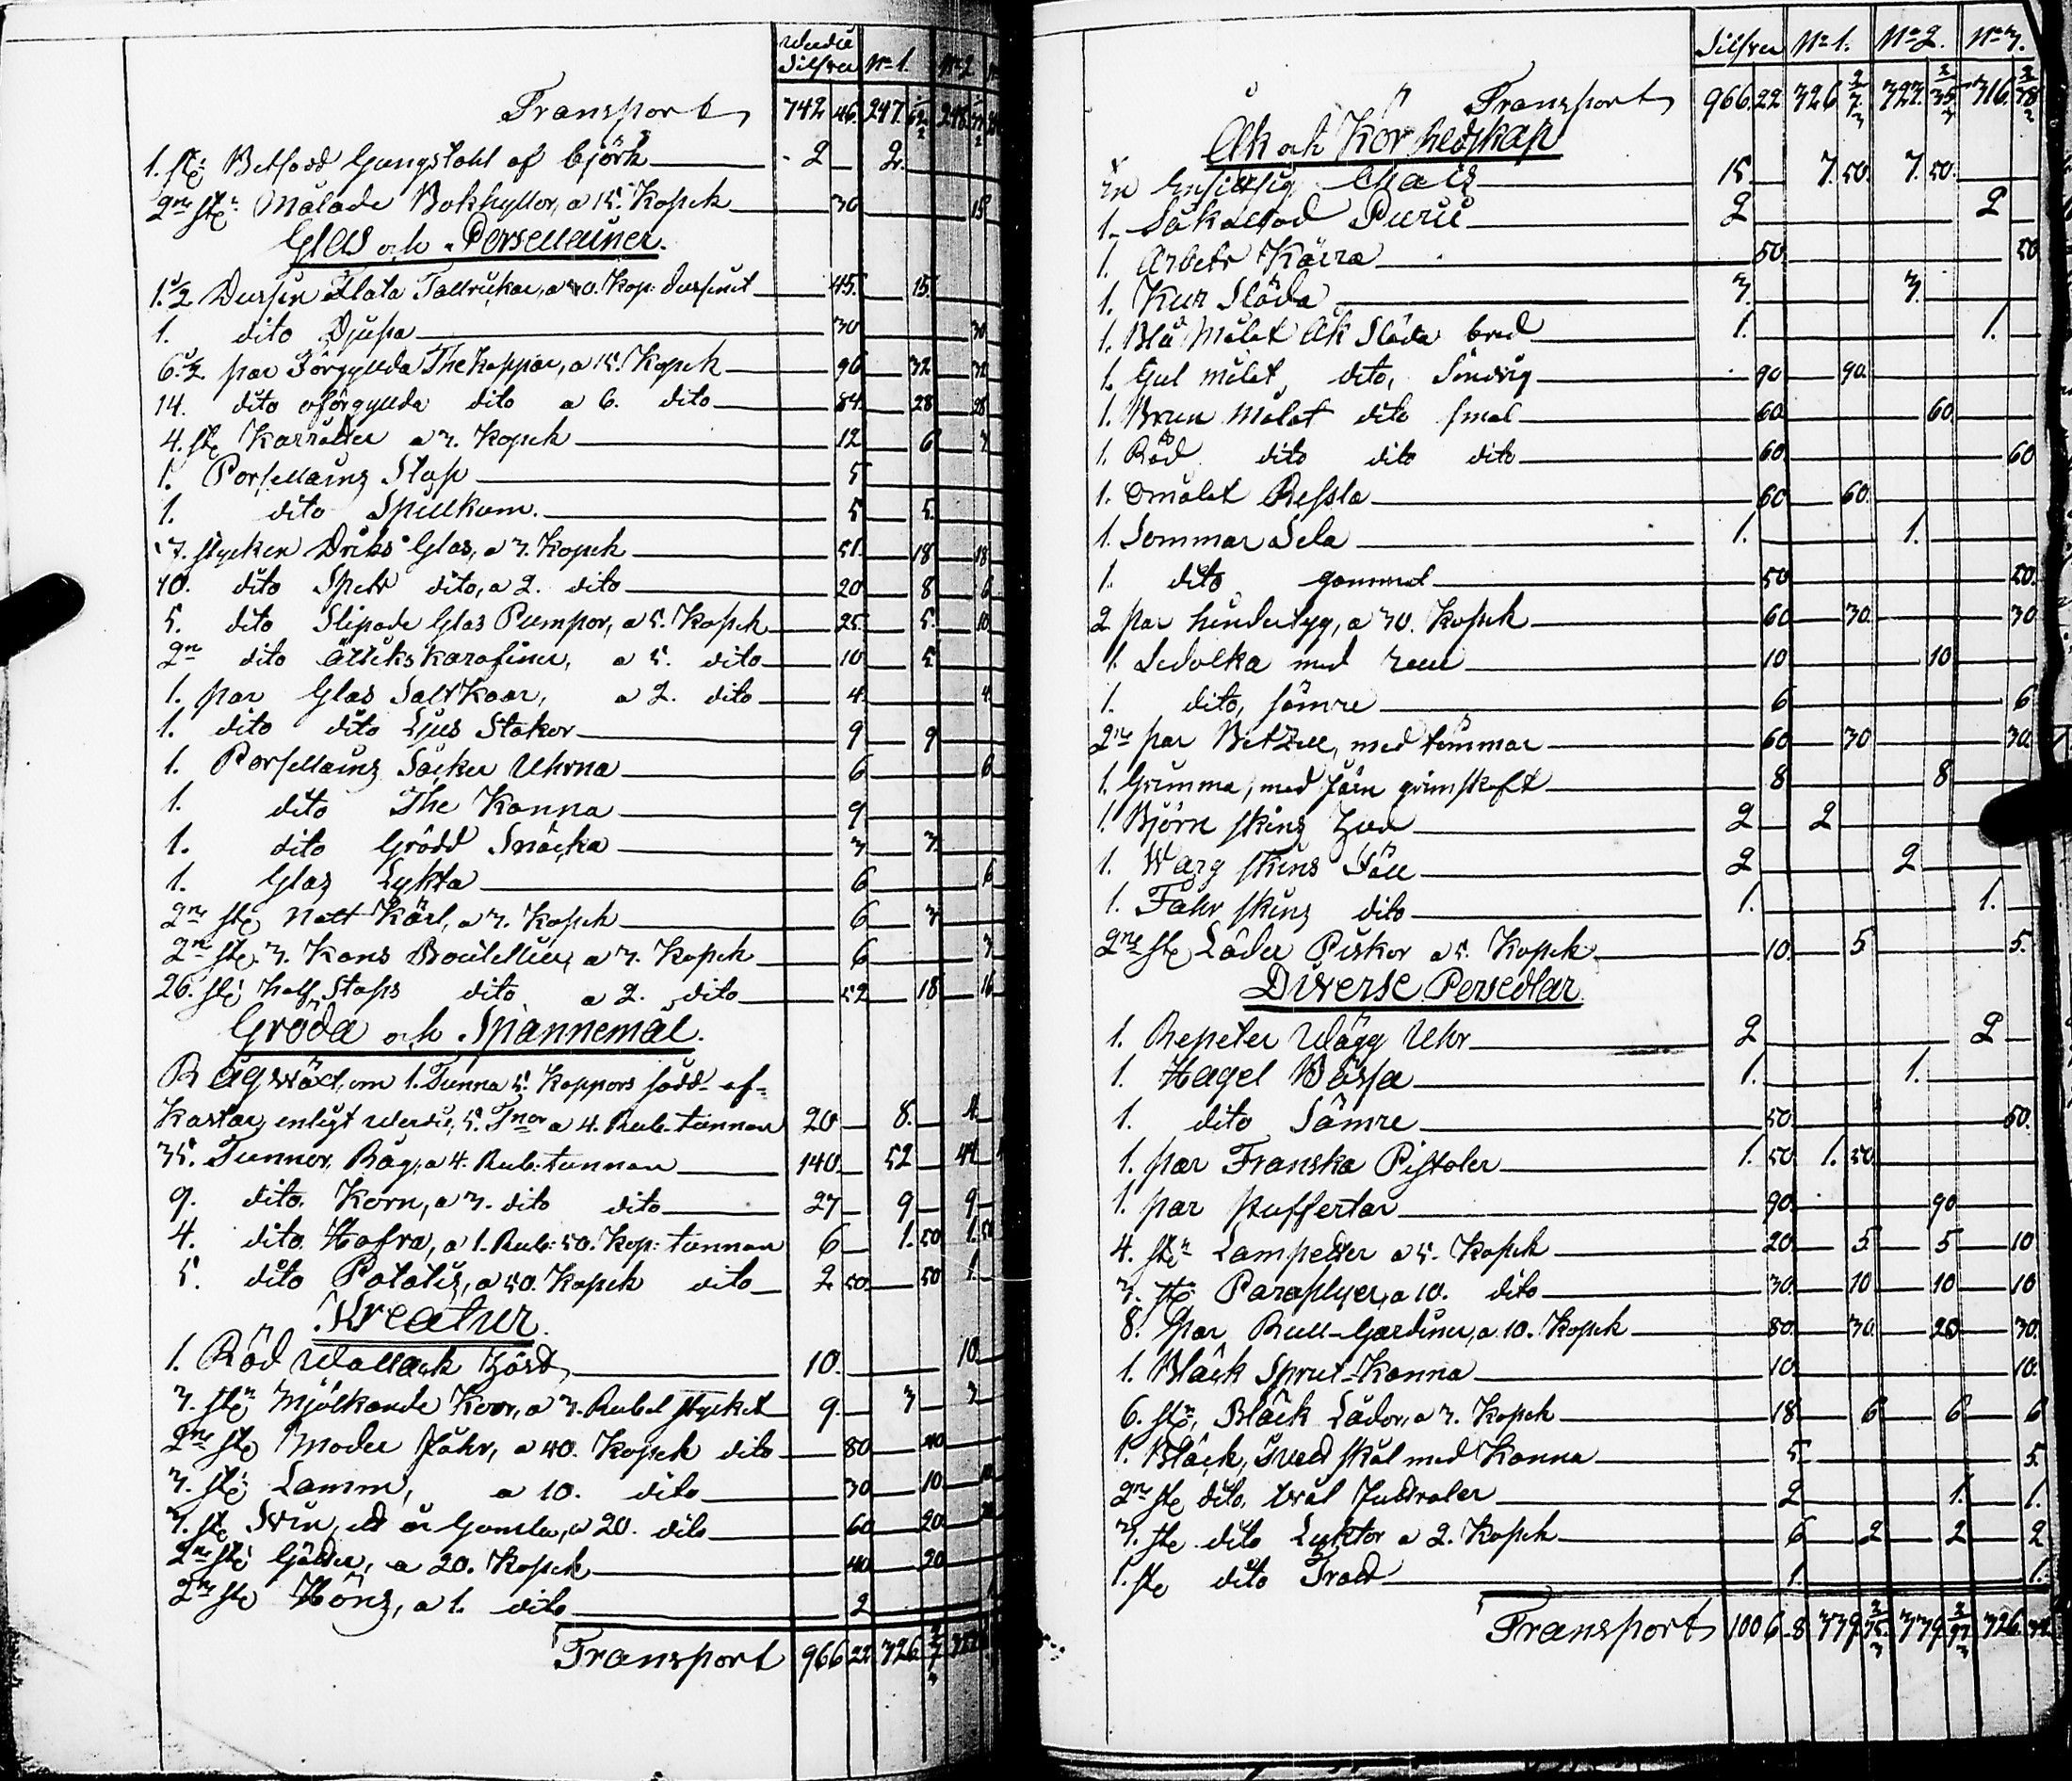 Werdie Silfver No 1. No 2
Transport 742 46. 247. 248.
1. st: Betsadd Gungstohl af björk 2 2.
2ne st: Målade Bokhyllor, a 15. Kopek 30 15
Glas och Porsellainer.
1.1/2 Dussin Flata Tallrickar, a 30. Kop: dussinet 45. 15.
1. dito Djupa 30 30
6.1/2 par Förgyllda The Koppar, a 15. Kopek 96 32 32
14. dito oförgyllda dito a 6. dito 84. 28 28
4. st: Karrotter a 3. Kopek 12 6 3
1. Porsellains Stop 5
1. dito Spillkum. 5 5.
17. stycken Driks Glas, a 3. Kopek 51. 18 18
10. dito Spets dito, a 2. dito 20 8 6
5. dito Slipade Glas Pumpor, a 5. Kopek 25. 5. 10
2ne dito Ättiks karafiner, a 5. dito 10 5
1. par Glas Salt Kaar, a 2. dito 4. 4
1. dito dito Ljus Stakar 9 9
1. Porsellains Socker Uhrna 6 6
1. dito The Kanna 9
1. dito Grädd Snäcka 3 3.
1. Glas Lykta 6 6
2ne st: Natt Kärl, a 3. Kopek 6 3
2ne st: 3. Kans Boutellier, a 3. Kopek 6 3
26. st: half Stops dito a 2. dito 52 18 16
Gröda och Spannemål.
Råg wäxt, om 1. Tunna 5. Koppors sådd af-
Kastar, enligt Werdie, 5. Tnor a 4. Rub. tunnan 20 8. 4
35. Tunnor, Råg, a 4. Rub: tunnan 140 52 44
9. dito. Korn, a 3. dito dito 27 9 9
4. dito. Hafra, a 1. Rub: 50. Kop: tunnan 6 1. 50 1. 50
5. dito Potatis, a 50. Kopek dito 2 50 50 1.
Kreatur.
1. Röd Wallack Häst 10. 10.
3. st: Mjölkande Kor, a 3. Rubel stycket 9. 3 3
2ne st: Moder Fåhr, a 40. Kopek dito 80 40
3. st: Lamm, a 10. dito 30 10 10
3. st: Svin, a 20. dito 60 20. 20
2ne st: a 20. Kopek 40 20
2ne st: Höns, a 1. dito 2
Transport 966 22 326
Silfver No 1. No 2. No 3.
Transport 966. 22 326 322. 316.
Åk och Kör Redskap
En Chais 15 7. 50. 7. 50.
1. 2 2
1. Arbets Kärra 50 50
1. Kur Släda 3. 3.
1. Blå Målat Åk Släda bred 1. 1.
1. Gul målat, dito, 90 90
1. Brun Målat dito smal 60 60
1. Röd dito dito dito 60 60
1. Omålat Ressla 60 60.
1. Sommar Sela 1. 1.
1. dito gammal 50 50.
2 par hindertyg, a 30. Kopek 60 30 30
1. Sedolka med rem 10 10
1. dito, sämre 6 6
2ne par Betzell, med tömmar 60 30 30
1. Grimma, med järn grimskaft 8 8
1. Björn skins Hud 2 2
1. Warg skins Fäll 2 2
1. Fåhr skins dito 1. 1.
2ne st: Läder Piskor a 5. Kopek 10. 5 5.
Diverse Persedlar
1. Repeter Wägg Uhr 2 2
1. Hagel Bössa 1. 1.
1. dito Sämre 50 50.
1. par Franska Pistoler 1. 50 1. 50
1. par Puffertar 90 90
4. st: Lampetter a 5. Kopek 20 5. 5 10
3. st: Paraplyer, a 10. dito 30. 10 10 10
8. par Rull-Gardiner, a 10. Kopek 80. 30. 20 30.
1. Bläck Sprut-Kanna 10. 10.
6. st: Bläck Lådor, a 3. Kopek 18 6 6 6
1. Bläck, skål med Kanna 5. 5.
2ne st: dito, 2 1. 1.
3. st: dito Lyktor a 2. Kopek 6 2 2 2
1. st: dito Tratt 1. 1.
Transport 1006 8 339 339 326.